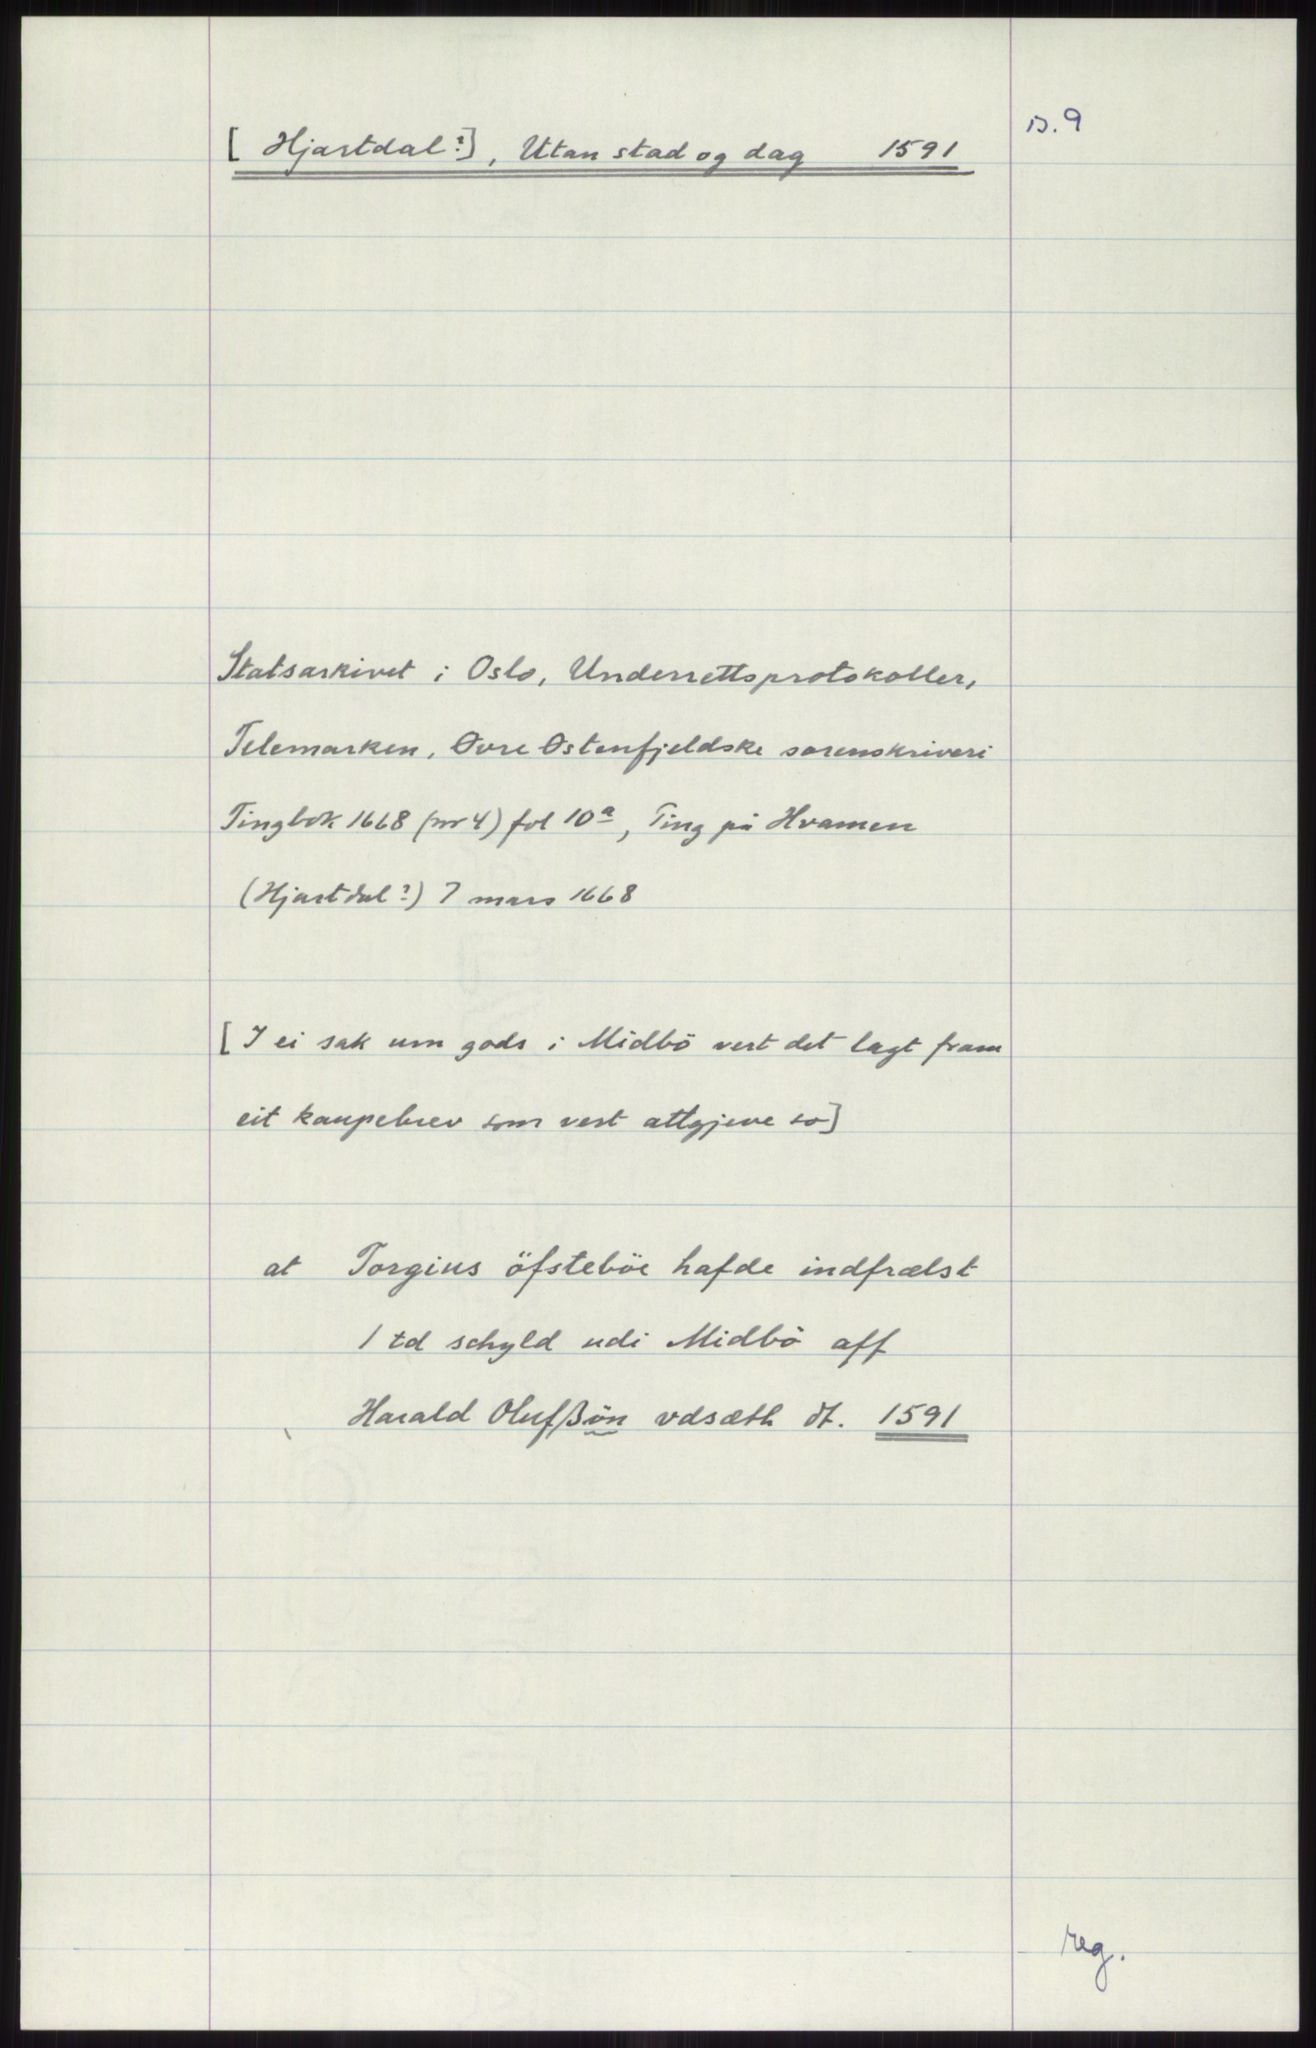 [Hjartdal?], Utan stad og dag 1591
s. 9
Statsarkivet i Oslo, Underrettsprotokoller,
Telemarken, Øvre Østenfjeldske sorenskriveri
Tingbok 1668 (nr 4) fol 10a, Ting på Hvamen
(Hjartdal?) 7 mars 1668
[I ei sak um gods i Midbö vert det lagt fram
eit kaupebrev som vert attgjeve so]
at Torgius öfsteböe hafde indfrælst
1 td schyld udi Midbö aff
Harald Olufßön vdsæth dt. 1591
reg.